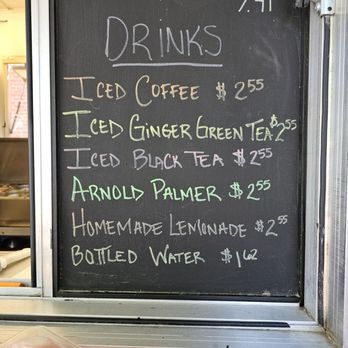 DRINKS
ICED COFFEE $2.55
ICED GINGER GREEN TEA $2.55
ICED BLACK TEA $2.55
ARNOLD PALMER $2.55
HOMEMADE LEMONADE $2.55
BOTTLED WATER $1.62